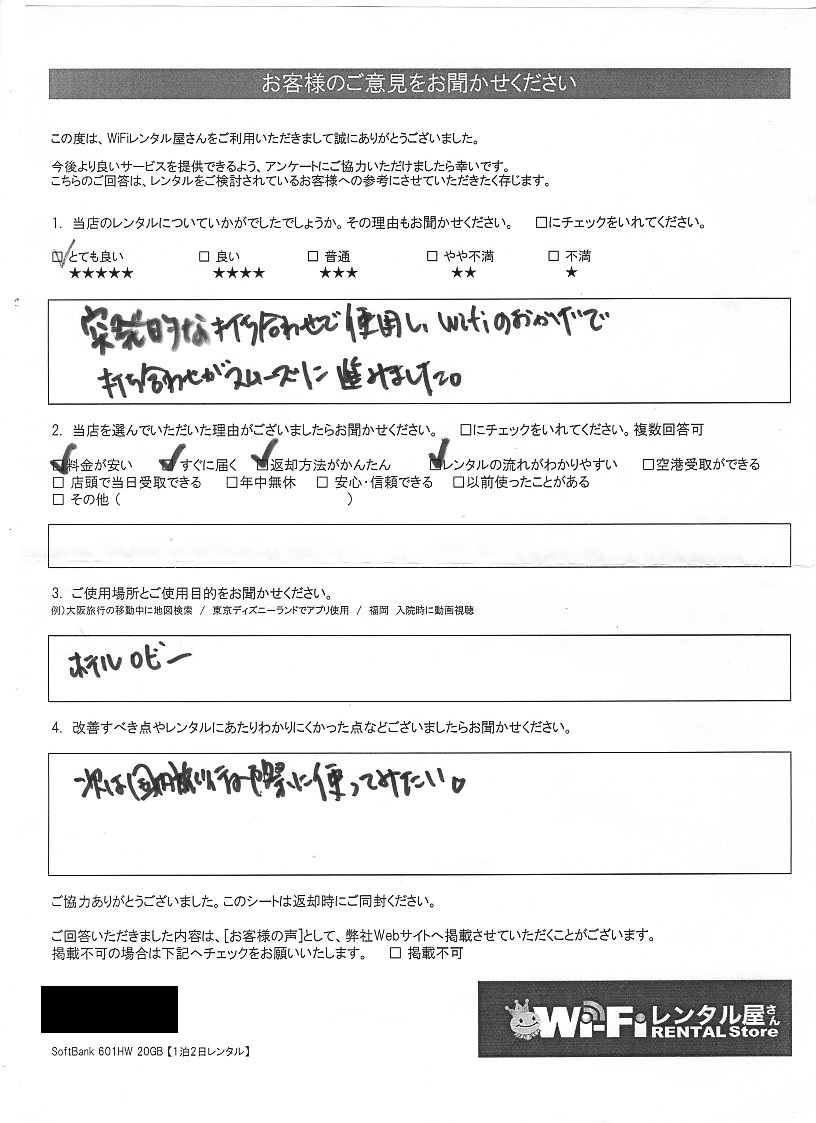 お客様のご意見をお聞かせください
この度は、WiFiレンタル屋さんをご利用いただきまして誠にありがとうございました。
今後より良いサービスを提供できるよう、アンケートにご協力いただけましたら幸いです。
こちらのご回答は、レンタルをご検討されているお客様への参考にさせていただきたく存じます。
1. 当店のレンタルについていかがでしたでしょうか。その理由もお聞かせください。 □にチェックをいれてください。
☑とても良い □ 良い □ 普通 □ やや不満 □ 不満
★★★★★ ★★★★ ★★★ ★★ ★
突発的な打ち合わせで使用し、Wifiのおかげで
打ち合わせがスムーズに進みました。
2. 当店を選んでいただいた理由がございましたらお聞かせください。 □にチェックをいれてください。複数回答可
☑料金が安い ☑すぐに届く ☑返却方法がかんたん ☑レンタルの流れがわかりやすい □空港受取ができる
□ 店頭で当日受取できる □年中無休 □ 安心・信頼できる □以前使ったことがある
□ その他 ( )
3. ご使用場所とご使用目的をお聞かせください。
例)大阪旅行の移動中に地図検索 / 東京ディズニーランドでアプリ使用 / 福岡 入院時に動画視聴
ホテルロビー
4. 改善すべき点やレンタルにあたりわかりにくかった点などございましたらお聞かせください。
次は国内旅行の際に使ってみたい。
ご協力ありがとうございました。このシートは返却時にご同封ください。
ご回答いただきました内容は、[お客様の声]として、弊社Webサイトへ掲載させていただくことがございます。
掲載不可の場合は下記へチェックをお願いいたします。 □ 掲載不可
Wi-Fiレンタル屋さん
RENTAL Store
SoftBank 601HW 20GB【1泊2日レンタル】